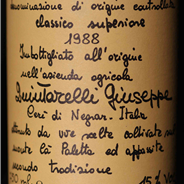 denominazione di origine controllata
classico superiore
1988
Imbottigliato all'origine
nell'azienda agricola
Quintarelli Giuseppe
Cerè di Negrar - Italia
ottenuto da uve scelte coltivate sul
monte Ca' Paletta ed appassite
secondo tradizione
15%